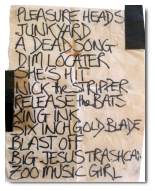 PLEASURE HEADS
JUNKYARD
A DEAD SONG
DIM LOCATER
SHE'S HIT
NICK THE STRIPPER
RELEASE THE BATS
KING INK
SIX INCH GOLD BLADE
BLAST OFF
BIG JESUS TRASHCAN
ZOO MUSIC GIRL